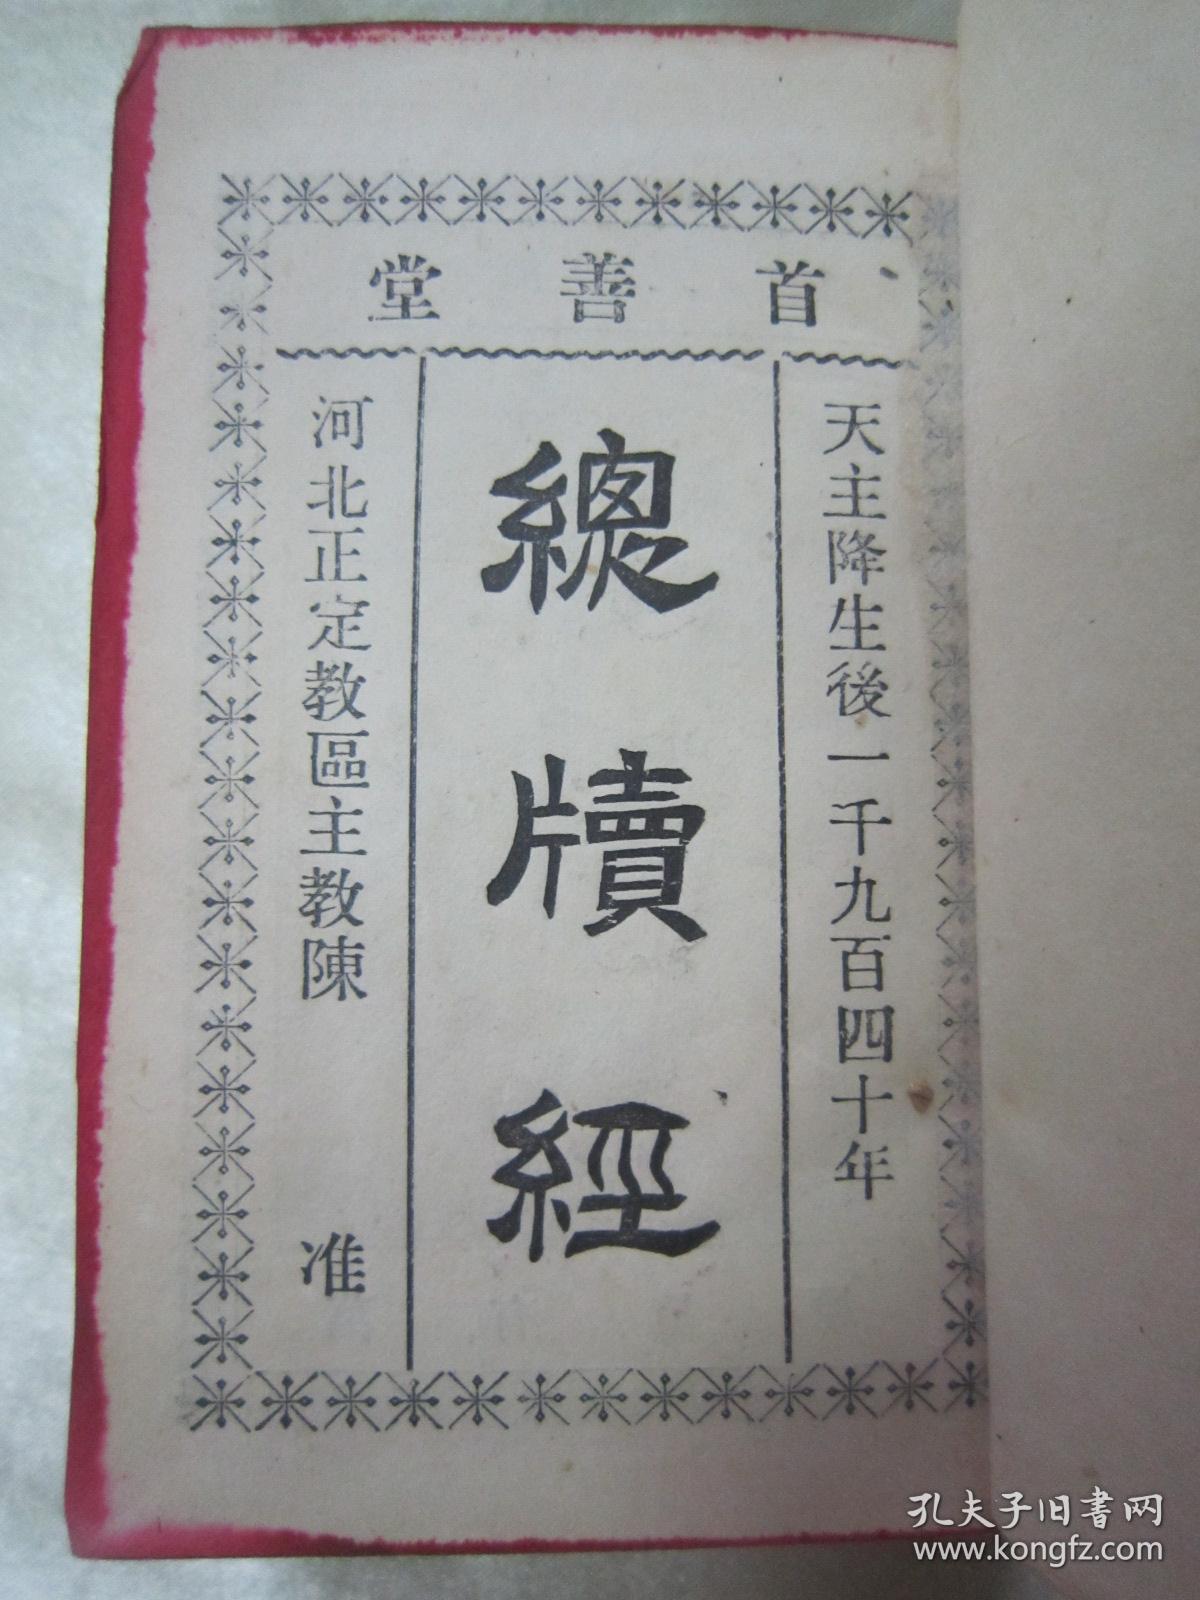 首善堂
天主降生後一千九百四十年
總牘經
河北正定教區主教陳 准
孔夫子旧書网
www.kongfz.com